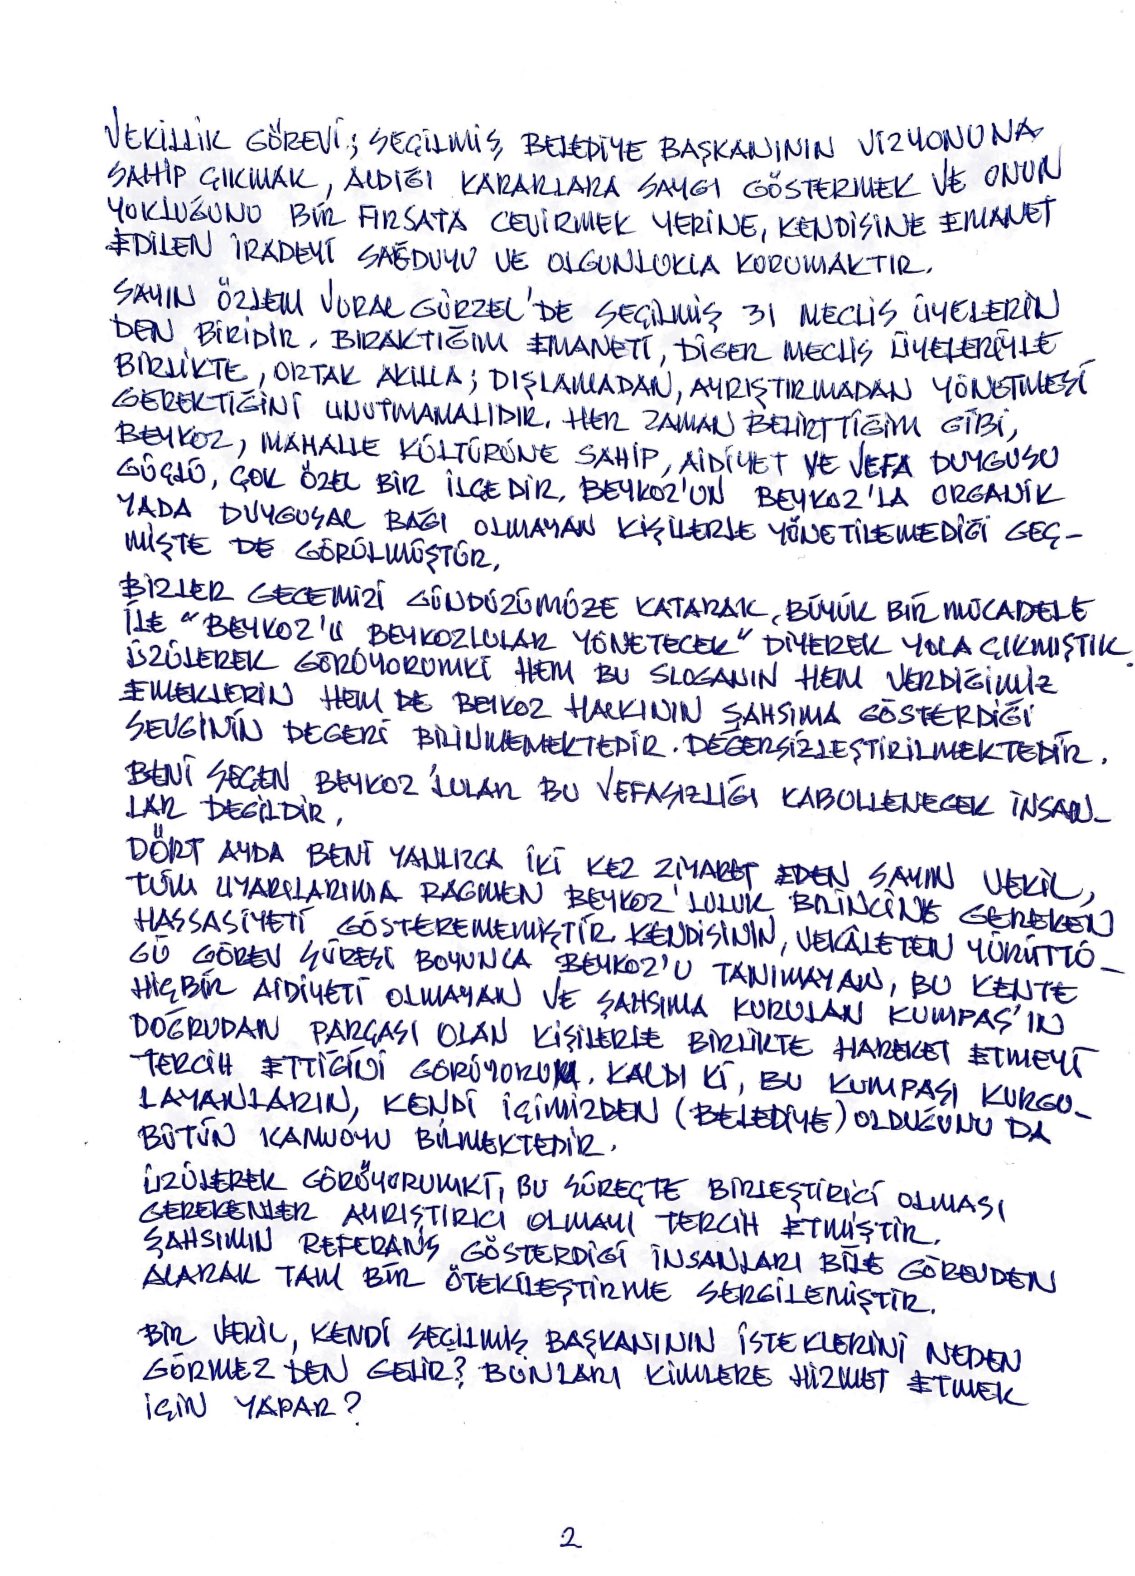 VEKİLLİK GÖREVİ; SEÇİLMİŞ BELEDİYE BAŞKANININ VİZYONUNA
SAHİP ÇIKMAK, ALDIĞI KARARLARA SAYGI GÖSTERMEK VE ONUN
YOKLUĞUNU BİR FIRSATA CEVİRMEK YERİNE, KENDİSİNE EMANET
EDİLEN İRADEYİ SAĞDUYU VE OLGUNLUKLA KORUMAKTIR.
SAYIN ÖZLEM VURAL GÜRZEL'DE SEÇİLMİŞ 31 MECLİS ÜYELERİN
DEN BİRİDİR. BIRAKTIĞIM EMANETİ, DİĞER MECLİS ÜYELERİYLE
BİRLİKTE, ORTAK AKILLA; DIŞLAMADAN, AYRIŞTIRMADAN YÖNETMESİ
GEREKTİĞİNİ UNUTMAMALIDIR. HER ZAMAN BELİRTTİĞİM GİBİ,
BEYKOZ, MAHALLE KÜLTÜRÜNE SAHİP, AİDİYET VE VEFA DUYGUSU
GÜÇLÜ, ÇOK ÖZEL BİR İLÇEDİR. BEYKOZ'UN BEYKOZ'LA ORGANİK
YADA DUYGUSAL BAĞI OLMAYAN KİŞİLERLE YÖNETİLEMEDİĞİ GEÇ-
MİŞTE DE GÖRÜLMÜŞTÜR.
BİZLER GECEMİZİ GÜNDÜZÜMÜZE KATARAK, BÜYÜK BİR MÜCADELE
İLE "BEYKOZ'U BEYKOZLULAR YÖNETECEK" DİYEREK YOLA ÇIKMIŞTIK.
ÜZÜLEREK GÖRÜYORUMKİ HEM BU SLOGANIN HEM VERDİĞİMİZ
EMEKLERİN HEM DE BEYKOZ HALKININ ŞAHSIMA GÖSTERDİĞİ
SEVGİNİN DEĞERİ BİLİNMEMEKTEDİR. DEĞERSİZLEŞTİRİLMEKTEDİR.
BENİ SEÇEN BEYKOZ'LULAR BU VEFASIZLIĞI KABULLENECEK İNSAN-
LAR DEĞİLDİR.
DÖRT AYDA BENİ YANLIZCA İKİ KEZ ZİYARET EDEN SAYIN VEKİL,
TÜM UYARILARIMA RAĞMEN BEYKOZ'LULUK BİLİNCİNE GEREKEN
HASSASİYETİ GÖSTEREMEMİŞTİR. KENDİSİNİN, VEKÂLETEN YÜRÜTTÜ-
ĞÜ GÖREV SÜRESİ BOYUNCA BEYKOZ'U TANIMAYAN, BU KENTE
HİÇBİR AİDİYETİ OLMAYAN VE ŞAHSIMA KURULAN KUMPAS'IN
DOĞRUDAN PARÇASI OLAN KİŞİLERLE BİRLİKTE HAREKET ETMEYİ
TERCİH ETTİĞİNİ GÖRÜYORUM. KALDI Kİ, BU KUMPASI KURGU-
LAYANLARIN, KENDİ İÇİMİZDEN (BELEDİYE) OLDUĞUNU DA
BÜTÜN KAMUOYU BİLMEKTEDİR.
ÜZÜLEREK GÖRÜYORUMKİ, BU SÜREÇTE BİRLEŞTİRİCİ OLMASI
GEREKENLER AYRIŞTIRICI OLMAYI TERCİH ETMİŞTİR.
ŞAHSIMIN REFERANS GÖSTERDİĞİ İNSANLARI BİLE GÖREVDEN
ALARAK TAM BİR ÖTEKİLEŞTİRME SERGİLEMİŞTİR.
BİR VEKİL, KENDİ SEÇİLMİŞ BAŞKANININ İSTEKLERİNİ NEDEN
GÖRMEZ DEN GELİR? BUNLARI KİMLERE HİZMET ETMEK
İÇİN YAPAR?
2